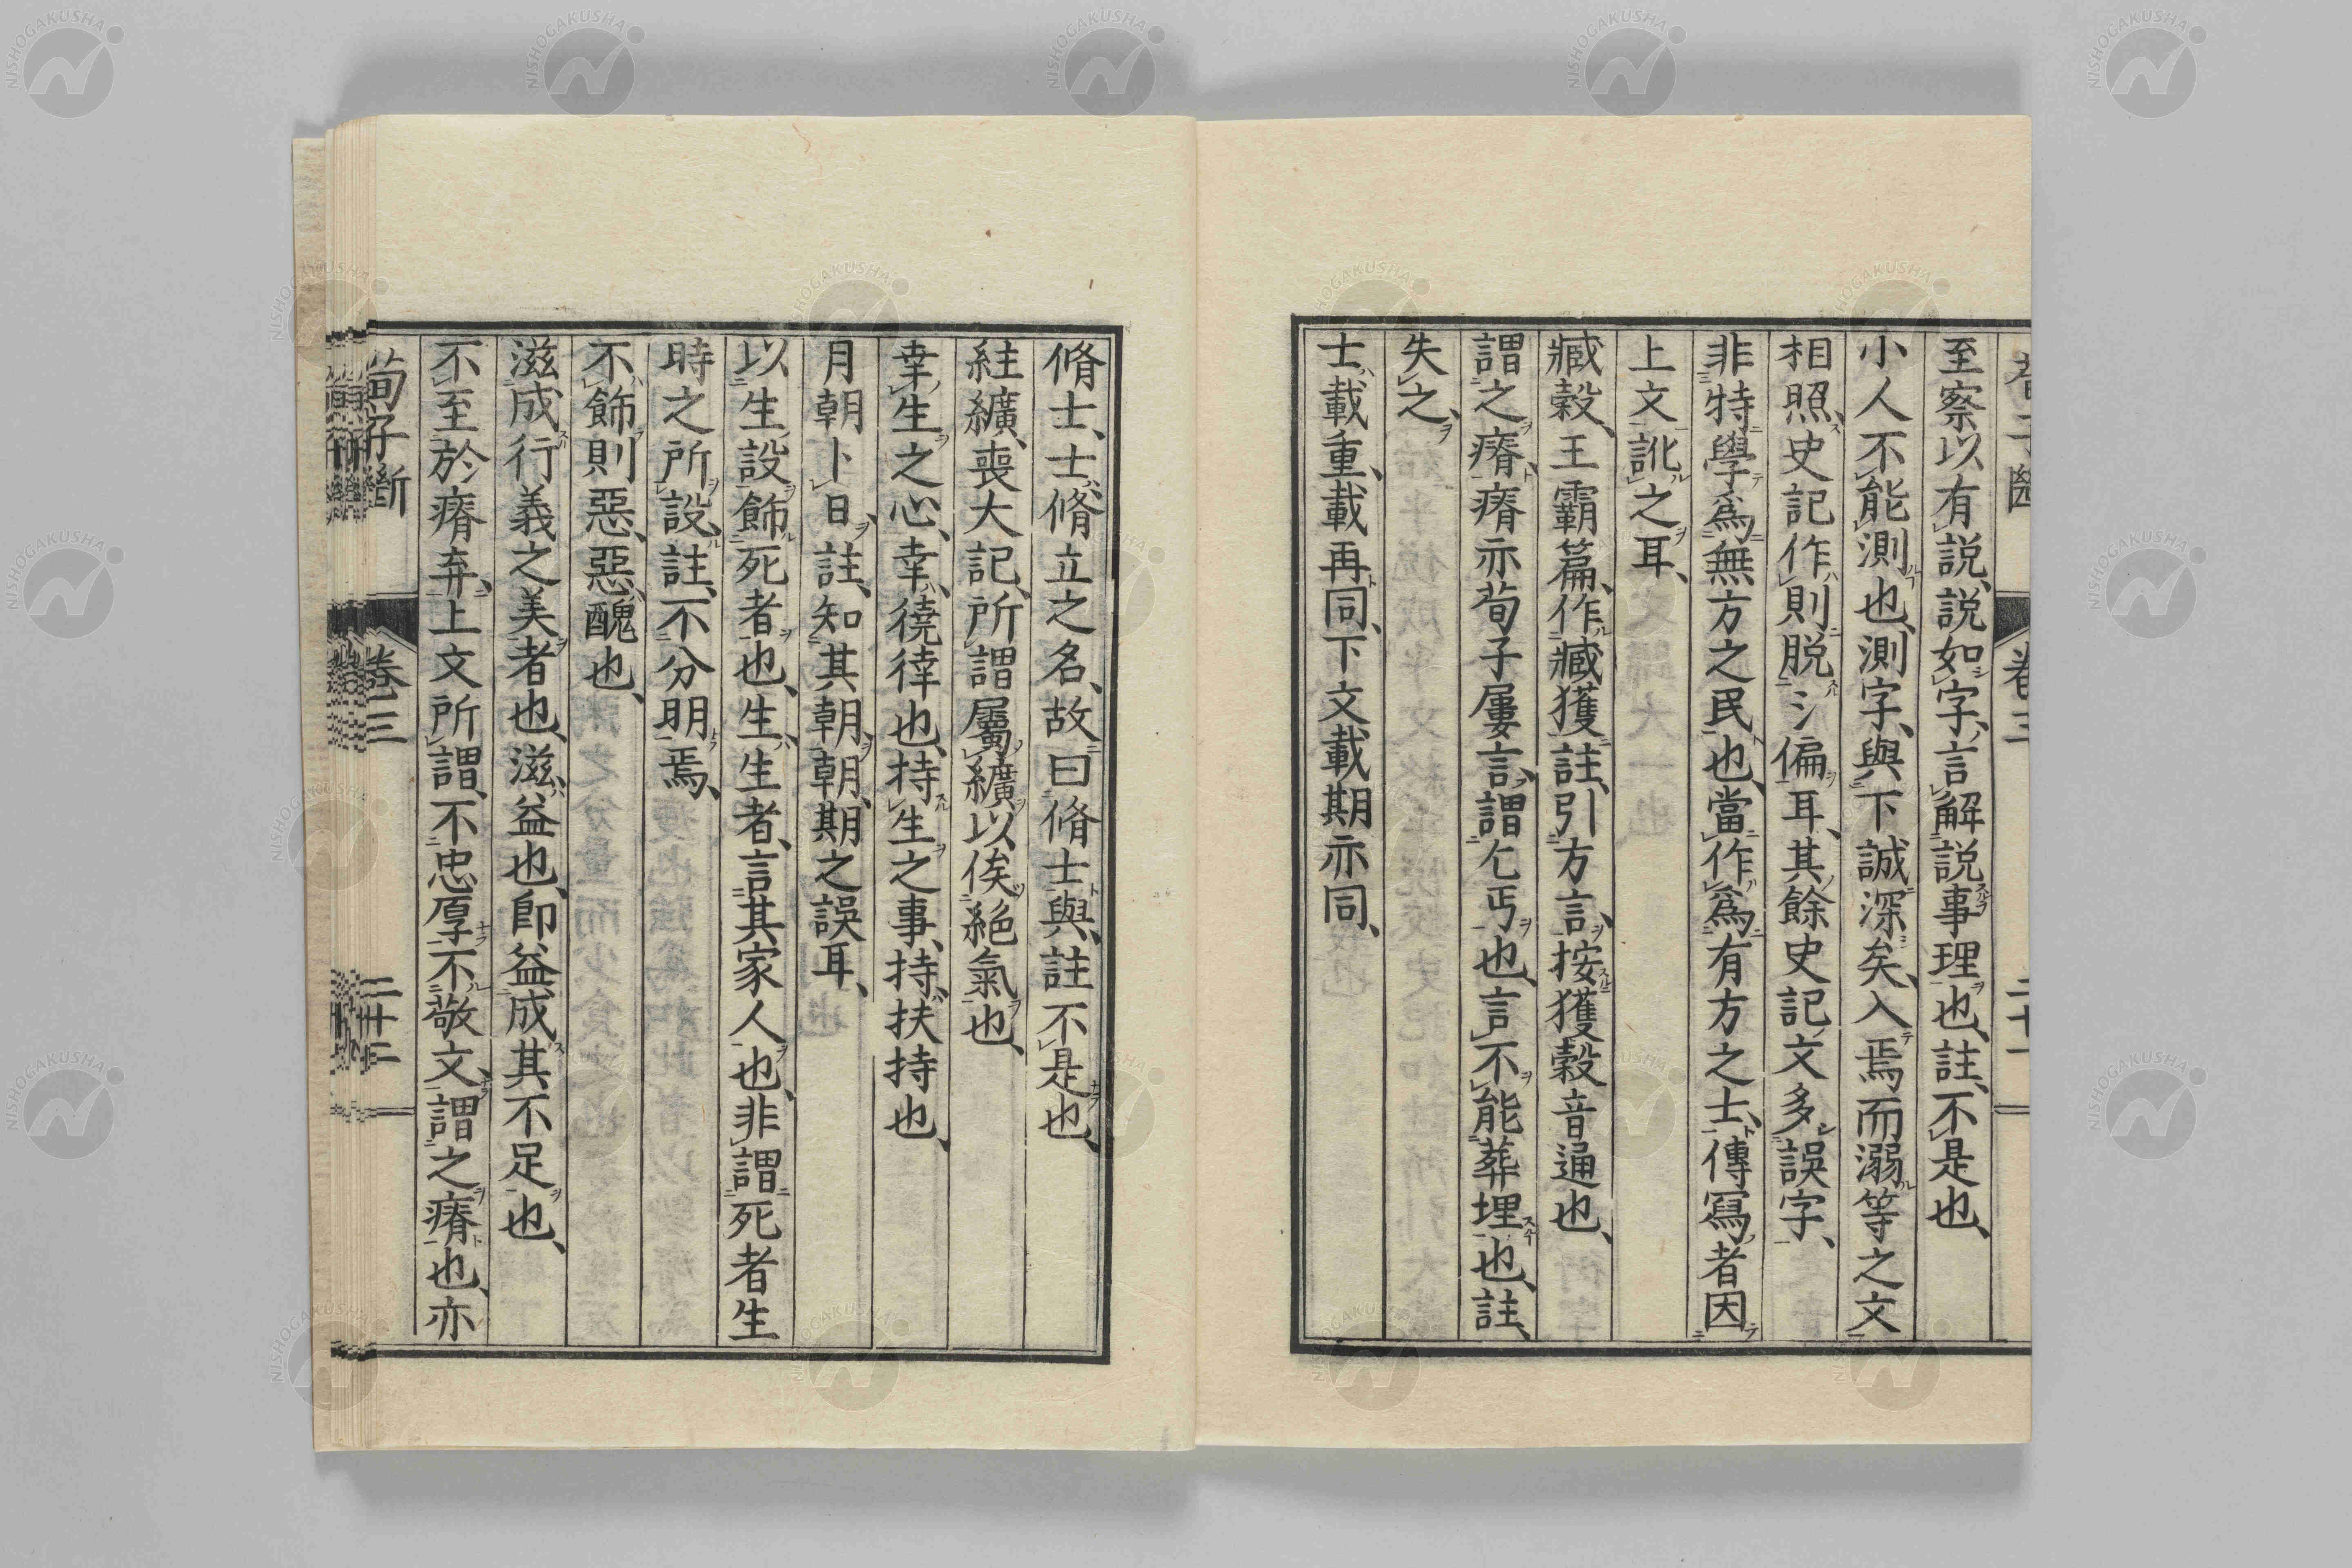 至察以有説、説如字、言解説事理也、註、不是也、
小人不能測也、測字、與下誠深矣、入焉而溺等之文
相照、史記作則脱氵偏耳、其餘史記文多誤字、
非特學爲無方之民也、當作爲有方之士、傳寫者因
上文訛之耳、
臧穀、王霸篇、作臧獲註、引方言、按獲穀音通也、
謂之瘠、瘠亦荀子屢言、謂乞丐也、言不能葬埋也、註、
失之、
士、載重、載再同、下文載期亦同、
脩士、士、脩立之名、故曰脩士與、註不是也、
絓纊、喪大記、所謂屬纊以俟絶氣也、
幸生之心、幸、徼倖也、持生之事、持、扶持也、
月朝卜日、註、知其朝、朝、期之誤耳、
以生設飾死者也、生、生者、言其家人也、非謂死者生
時之所設、註、不分明焉、
不飾則惡、惡、醜也、
滋成行義之美者也、滋、益也、卽益成其不足也、
不至於瘠弃、上文所謂、不忠厚不敬文、謂之瘠也、亦
荀子斷
卷三
二十二